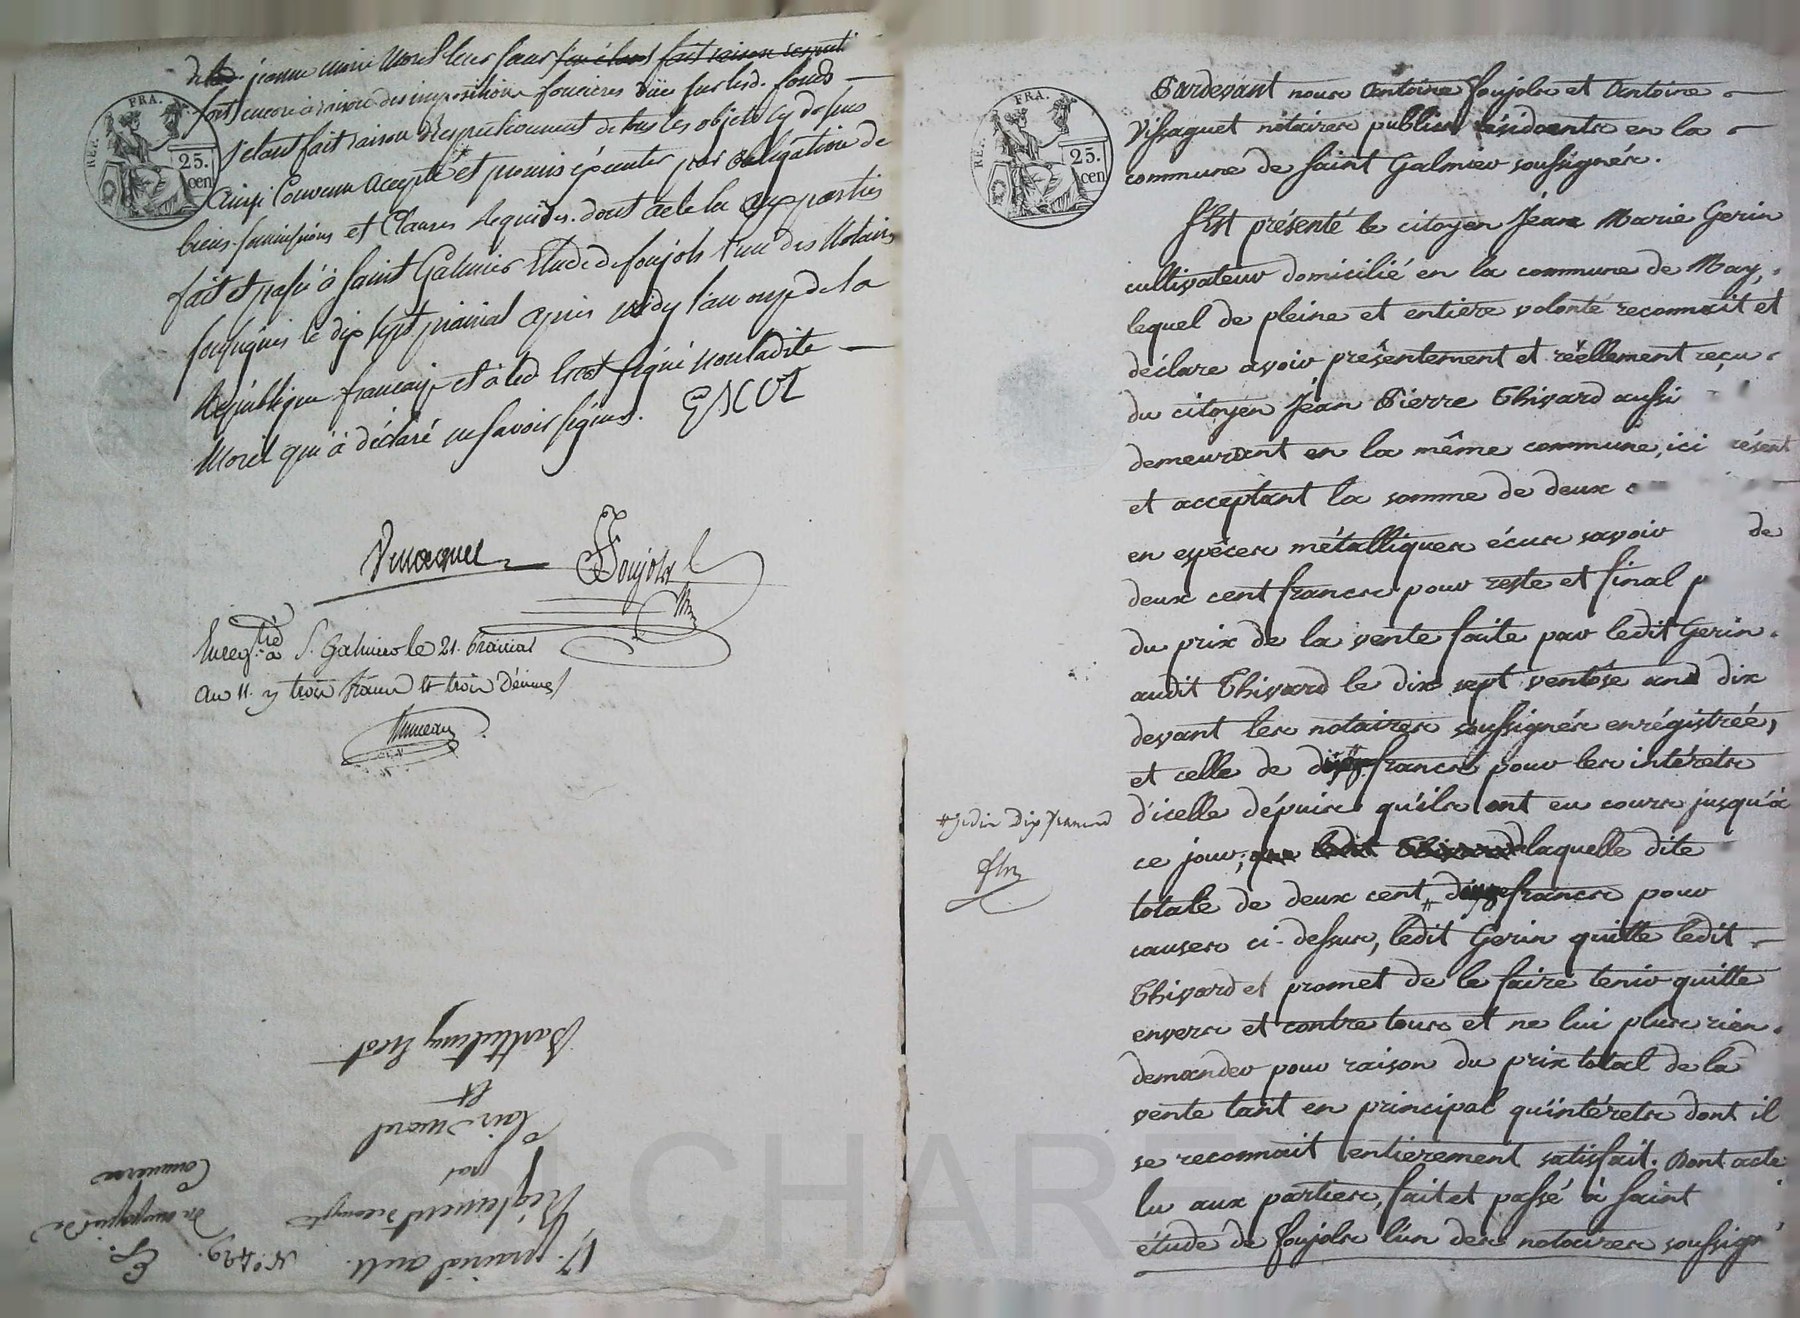 jeanne marie Morel leur sœur
fait encore à raison des impositions foncières dües sur lesd. fonds
s'etant fait raison respectivement de tous les objets cy dessus
Ainsi Convenu Accepté et promis éxécuter par obligation de
biens soumissions et Clauses Requises. dont acte lu aux parties
fait et passé à Saint Galmier Etude de foujols l'un des Notaires
soussignés le dix sept prairial après midy l'an onze de la
République française et à led Escot signé non ladite
Morel qui à déclaré ne savoir signer. ESCOT
Foujols
Enregtré à St Galmier le 21. Prairial
an 11. trois francs trois décimes
17. prairial an 11. N° 429.
Reglement de compte
par
Clair Morel
et
Barthelemy Escot
REP. FRA.
25.
cen
REP. FRA.
25.
cen
Pardevant nous Antoine foujols et Antoine
Vissaguet notaires publics résidants en la
commune de Saint Galmier soussignés.
Est présenté le citoyen Jean Marie Gerin
cultivateur domicilié en la commune de May,
lequel de pleine et entière volonté reconnait et
déclare avoir présentement et réellement reçu
du citoyen Jean Pierre Thivard aussi
demeurant en la même commune, ici résent
et acceptant la somme de deux
en espèces métalliques écus savoir de
deux cent francs pour reste et final p
du prix de la vente faite par ledit Gerin
audit Thivard le dix sept ventôse an dix
devant les notaires soussignés enrégistrée,
et celle de francs pour les intérêts
d'icelle dépuis qu'ils ont eu cours jusqu'à
ce jour; que ledit Thivard laquelle dite
totale de deux cent francs pour
causes ci-dessus, ledit Gerin quitte ledit
Thivard et promet de le faire tenir quitte
envers et contre tous et ne lui plus rien
demander pour raison du prix total de la
vente tant en principal qu'intérêts dont il
se reconnait entierement satisfait. Dont acte
lu aux parties, fait et passé à Saint
étude de foujols l'un des notaires soussign
# dix francs
CHAR